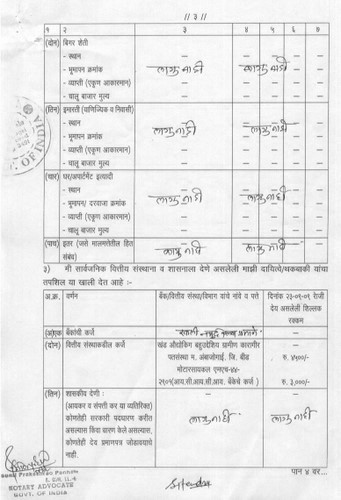 // ३ //
१ २ ३ ४ ५ ६ ७
(दोन) बिगर शेती
- स्थान
- भूमापन क्रमांक लागु नाही लागु नाही
- व्याप्ती (एकूण आकारमान)
- चालू बाजार मुल्य
(तिन) इमारती (वाणिज्यिक व निवासी)
- स्थान
- भूमापन क्रमांक लागु नाही लागु नाही
- व्याप्ती (एकूण आकारमान)
- चालू बाजार मुल्य
(चार) घर/अपार्टमेंट इत्यादी
- स्थान
- भूमापन/ दरवाजा क्रमांक लागु नाही लागु नाही
- व्याप्ती (एकूण आकारमान)
- चालू बाजार मुल्य
(पाच) इतर (जसे मालमत्तेतील हित लागु नाही लागु नाही
संबंध)
३) मी सार्वजनिक वित्तीय संस्थाना व शासनाला देणे असलेली माझी दायित्वे/थकबाकी यांचा
तपशिल या खाली देत आहे :-
अ.क्र. वर्णन बँक/वित्तीय संस्था/विभाग यांचे नांवे व पते दिनांक २३-०९-०९ रोजी
देय असलेली शिल्लक
रक्कम
(अ)एक बँकांची कर्जे
(दोन) वित्तिय संस्थाकडील कर्जे खंड औद्योगिक बहुउद्देशिय ग्रामीण कारागीर
पतसंस्था म. अंबाजोगाई, जि. बीड रु. ४५००/-
मोटारसायकल एमएच-४४-
२९०५(आय.सी.आय.सी.आय. बँकेचे कर्ज) रु. ३,०००/-
(तिन) शासकीय देणी :
(आयकर व संपत्ती कर या व्यतिरिक्त)
कोणतेही सरकारी पदधारण करीत लागु नाही लागु नाही
असल्यास किंवा धारण केले असल्यास,
कोणतेही देय प्रमाणपत्र जोडावयाचे
नाही.
पान ४ वर...
NOTARY ADVOCATE
GOVT. OF INDIA